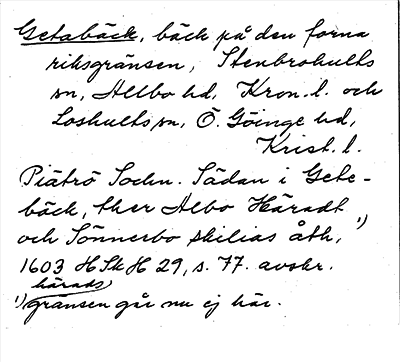 Getabäck, bäck på den forna
riksgränsen, Stenbrohults
sn, Allbo hd, Kron. l. och
Loshults sn, Ö. Göinge hd,
Krist. l.
Piätrö Sochn. Sädan i Gete-
bäck, ther Albo Häradt
och Sönnerbo skilias åth, ¹)
1603 HSkH 29, s. 77. avskr.
härads
¹) gränsen går nu ej här.